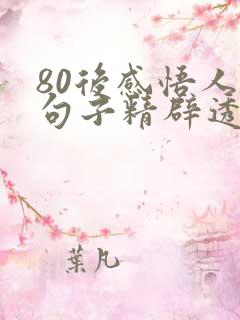 80後感悟人
句子精辟透
葉凡